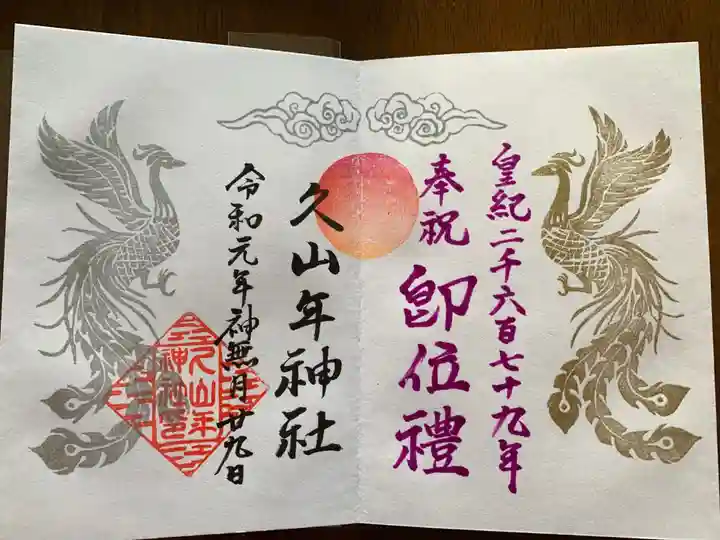 皇紀二千六百七十九年
奉祝 即位禮
久山年神社
令和元年神無月廿九日